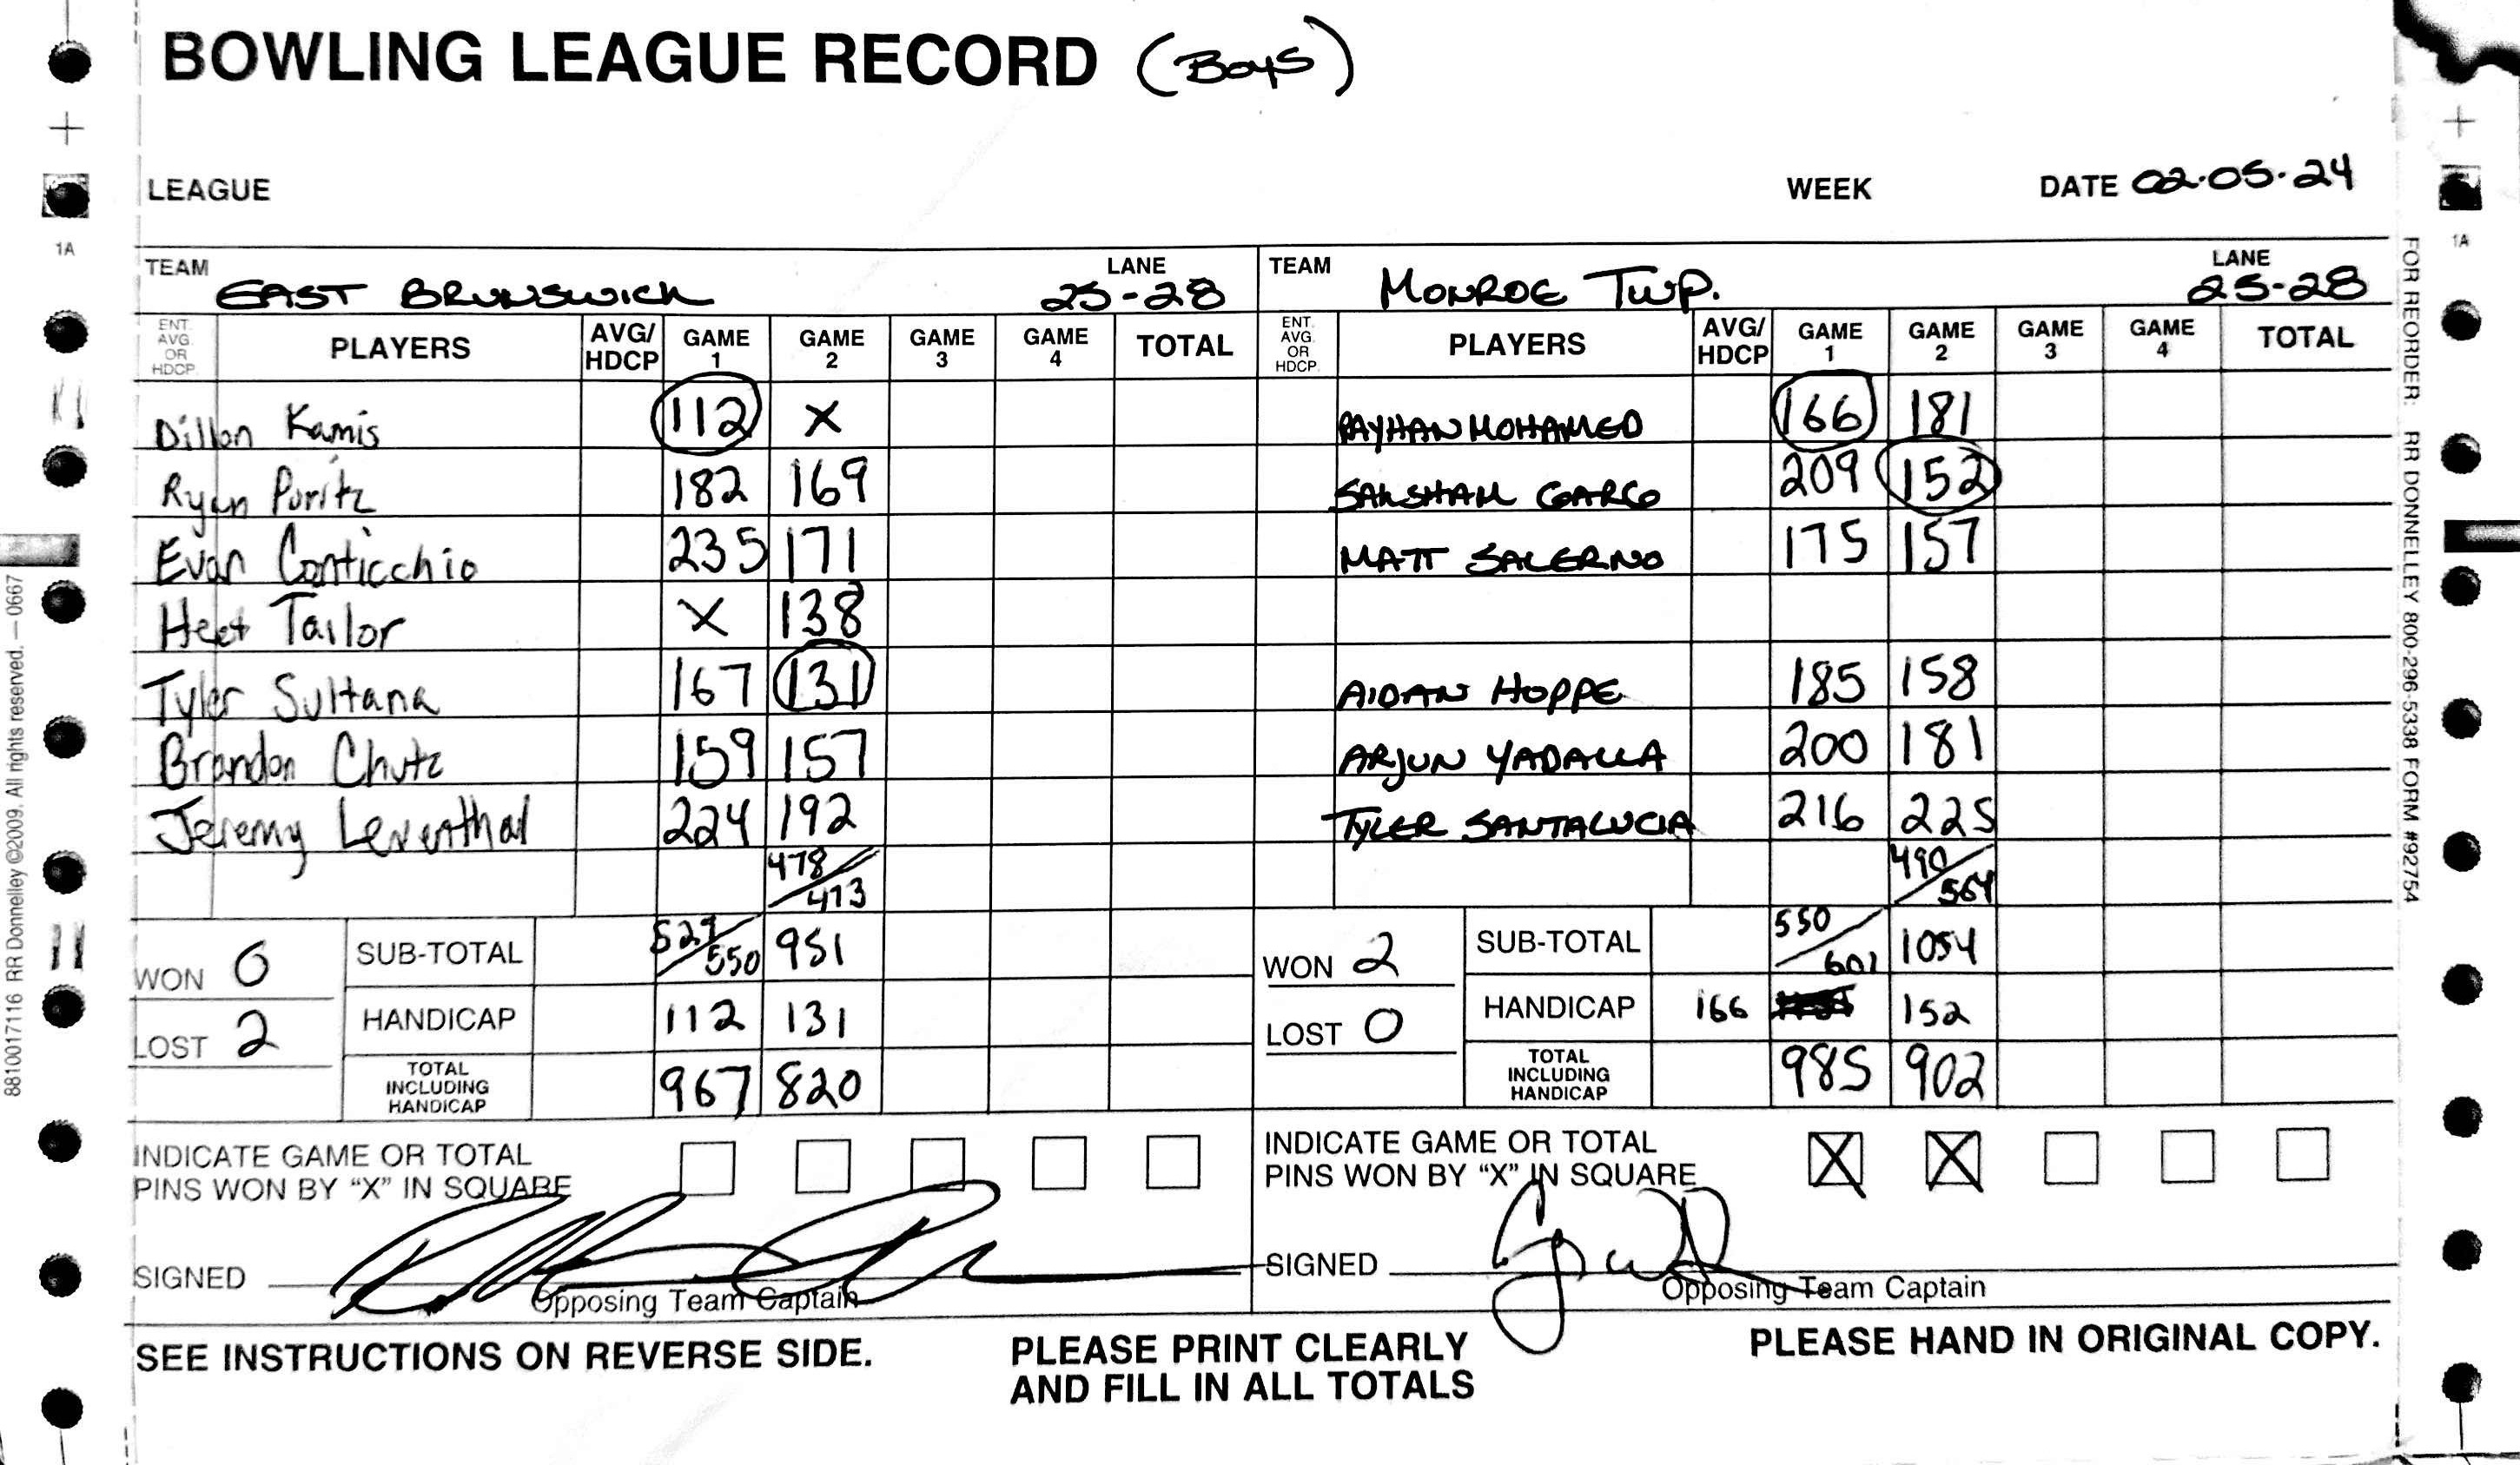 BOWLING LEAGUE RECORD (Boys)
LEAGUE WEEK DATE 02.05.24
1A 1A
TEAM EAST BRUNSWICK LANE 25-28 TEAM MONROE TWP. LANE 25-28
ENT. AVG. OR HDCP. PLAYERS AVG/HDCP GAME 1 GAME 2 GAME 3 GAME 4 TOTAL ENT. AVG. OR HDCP. PLAYERS AVG/HDCP GAME 1 GAME 2 GAME 3 GAME 4 TOTAL
Dillon Kamis 112 X RAYHAN MOHAMED 166 181
Ryan Puritz 182 169 SAKSHAM GARG 209 152
Evan Conticchio 235 171 MATT SALERNO 175 157
Heet Tailor X 138
Tyler Sultana 167 131 AIDAN HOPPE 185 158
Brandon Chutz 159 157 ARJUN YADALLA 200 181
Jeremy Leventhal 224 192 TYLER SANTALUCIA 216 225
478/473 490/564
WON 0 SUB-TOTAL 529/550 951 WON 2 SUB-TOTAL 550/601 1054
LOST 2 HANDICAP 112 131 LOST 0 HANDICAP 166 152
TOTAL INCLUDING HANDICAP 967 820 TOTAL INCLUDING HANDICAP 985 902
INDICATE GAME OR TOTAL INDICATE GAME OR TOTAL
PINS WON BY “X” IN SQUARE PINS WON BY “X” IN SQUARE X X
SIGNED SIGNED
Opposing Team Captain Opposing Team Captain
SEE INSTRUCTIONS ON REVERSE SIDE. PLEASE PRINT CLEARLY PLEASE HAND IN ORIGINAL COPY.
AND FILL IN ALL TOTALS
8810017116 RR Donnelley ©2009. All rights reserved. — 0667
FOR REORDER: RR DONNELLEY 800-296-5338 FORM #92754